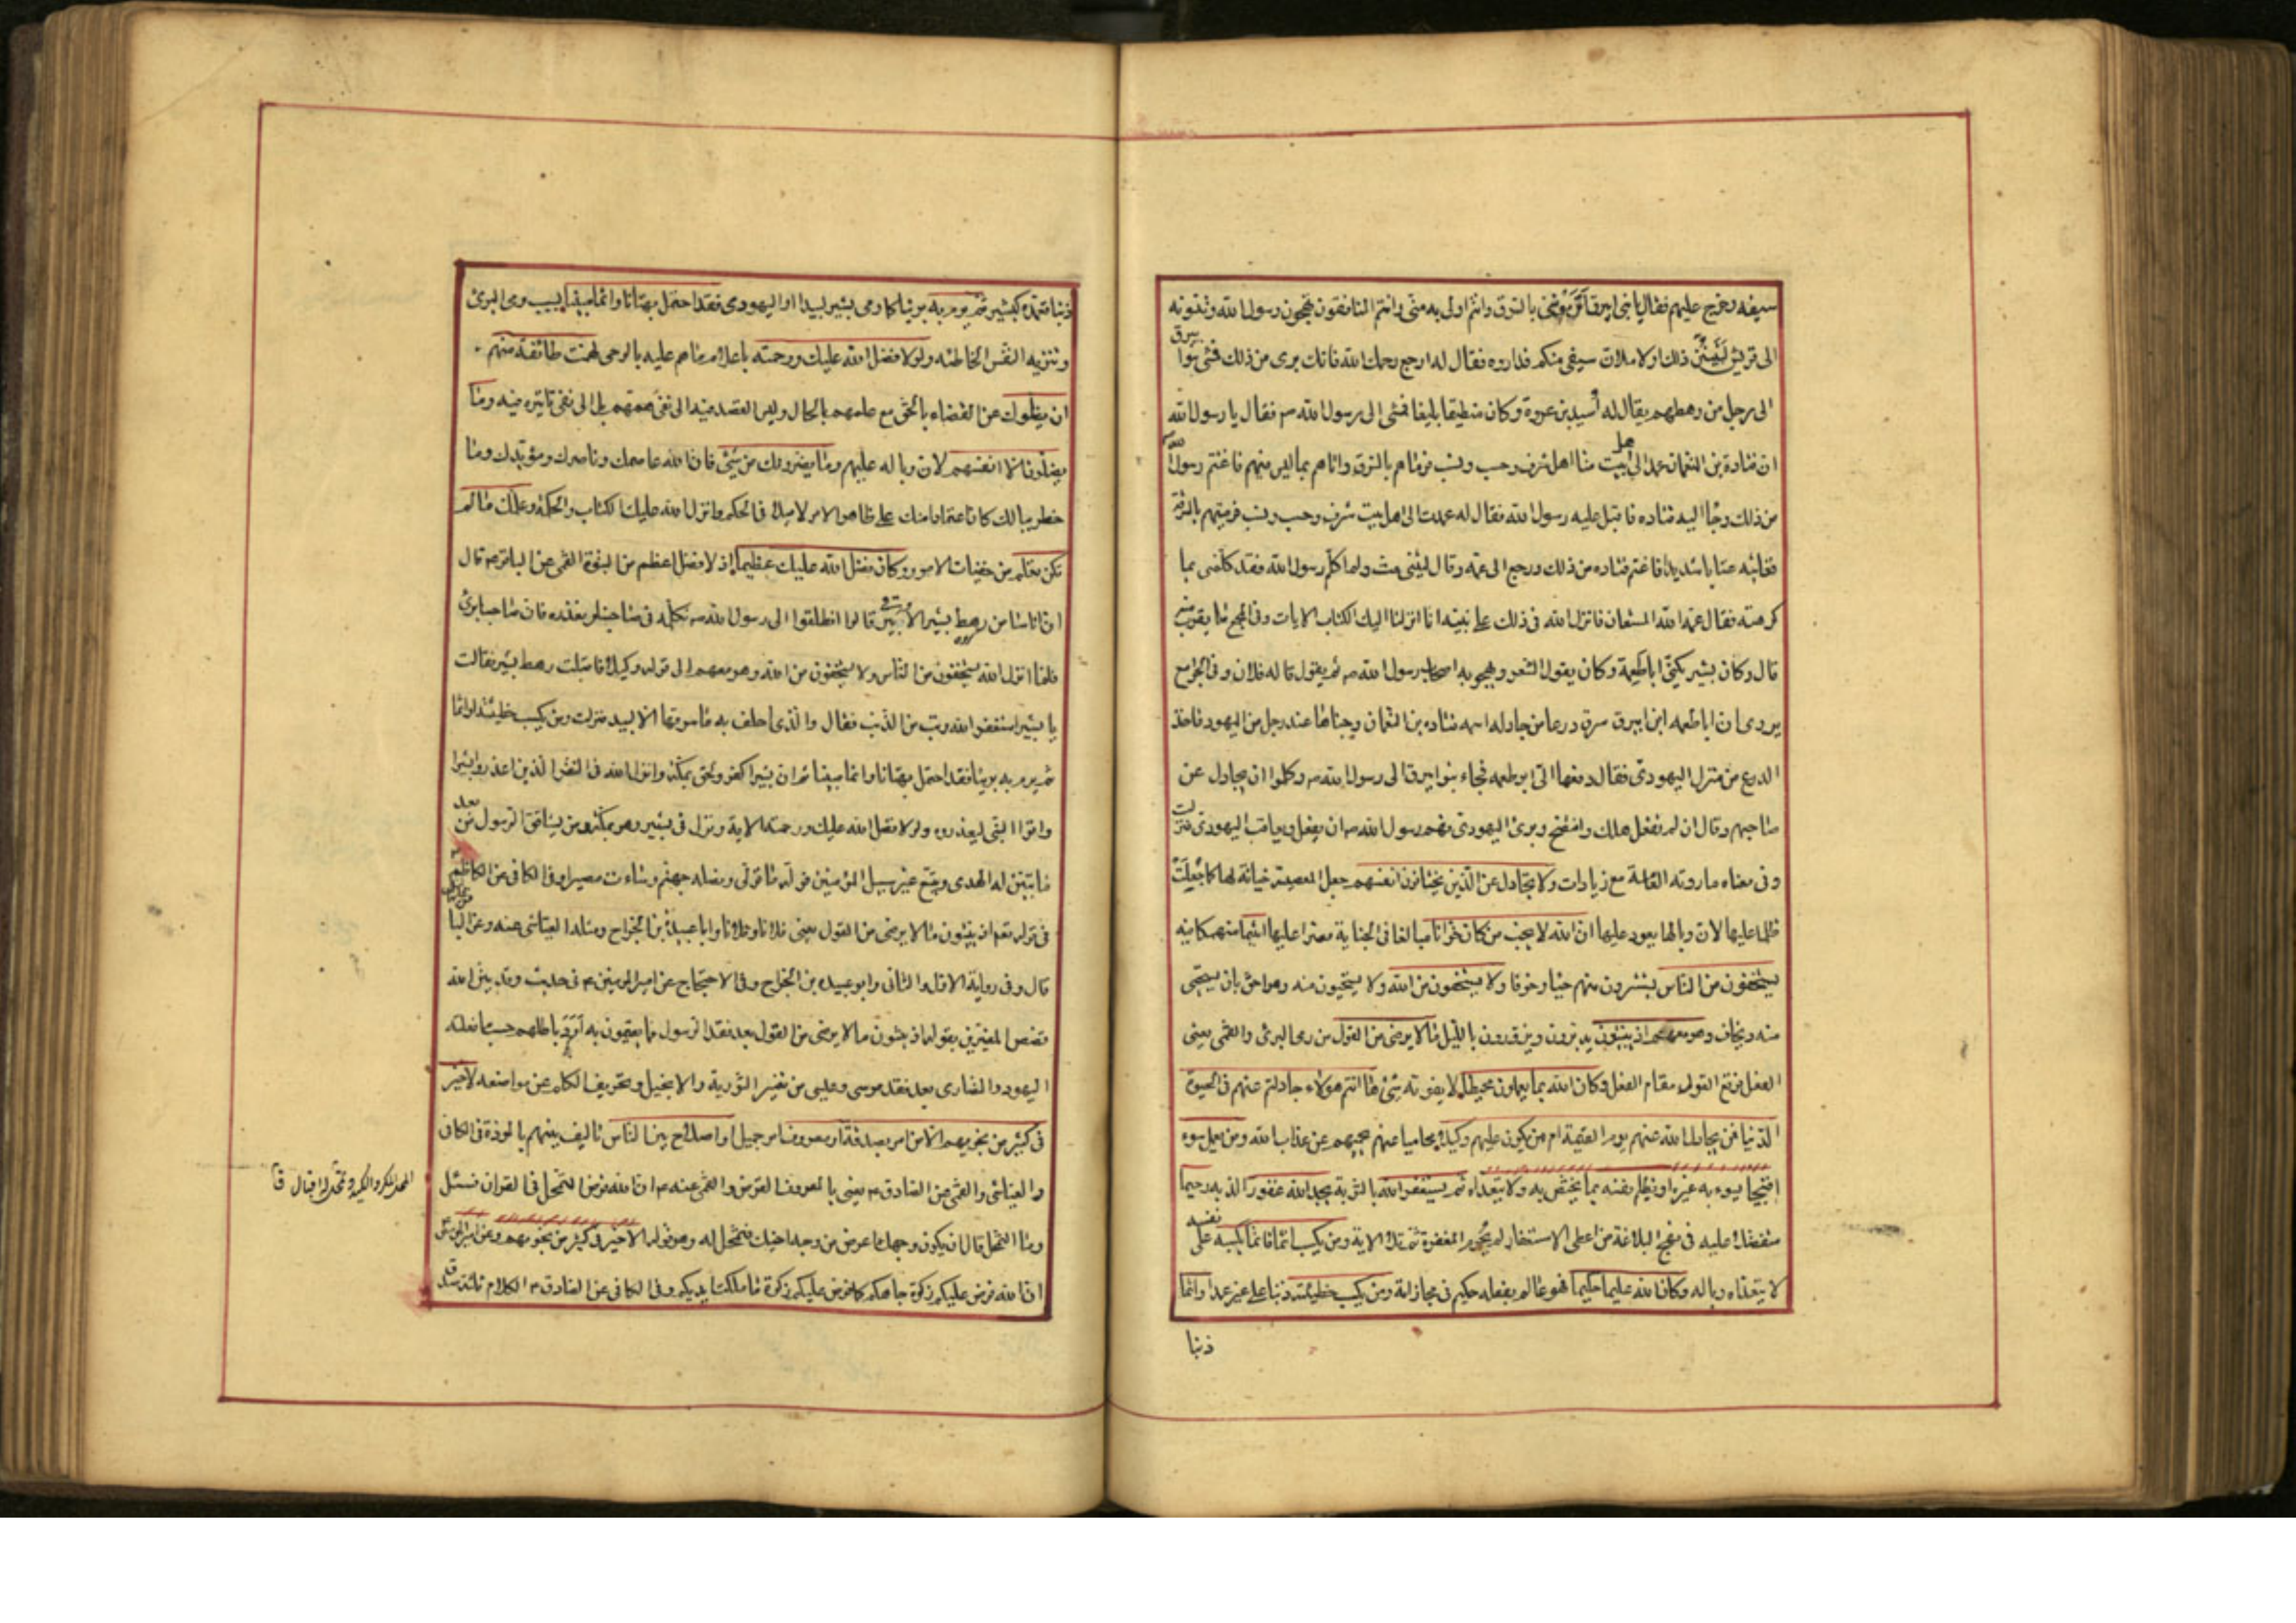 سيفه وخرج عليهم فقال يا بني ابيرق أترمونني بالسرق وانتم اولى به مني وانتم المنافقون تهجون رسول الله وتنسبونه
الى قريش لتبينن ذلك او لاملان سيفي منكم فداروه فقال له ارجع رحمك الله فانك بري من ذلك فمشى بنوا ابيرق
الى رجل من رهطهم يقال له أسيد بن عروة وكان منطيقا بليغا فمشى الى رسول الله ص فقال يا رسول الله
ان قتادة بن النعمان عمد الى اهل بيت منا اهل شرف وحسب ونسب فرماهم بالسرق واتاهم بما ليس فيهم فاغتم رسول الله
من ذلك وجاء اليه قتاده فاقبل عليه رسول الله فقال له عمدت الى اهل بيت شرف وحسب ونسب فرميتهم بالسرقة
فعاتبه عتابا شديدا فاغتم قتاده من ذلك ورجع الى عمه وقال ليتني مت ولم اكلم رسول الله فقد كلمني بما
كرهته فقال عمه الله المستعان فانزل الله في ذلك على نبيه انا انزلنا اليك الكتاب الايات وفي المجمع ما يقرب منه
قال وكان بشير يكنى ابا طعمة وكان يقول الشعر ويهجو به اصحاب رسول الله ص ثم يقول قاله فلان وفي الجوامع
يروى ان ابا طعمه ابن ابيرق سرق درعا من جار له اسمه قتاده بن النعمان وخباها عند رجل من اليهود فاخذ
الدرع من منزل اليهودي فقال دفعها الي ابو طعمه فجاء بنوا ابيرق الى رسول الله ص وكلموا ان يجادل عن
صاحبهم وقال ان لم تفعل هلك وافتضح وبرئ اليهودي فهم رسول الله ص ان يفعل ويعاقب اليهودي فنزلت
وفي معناه ما روته العامة مع زيادات ولا تجادل عن الذين يختانون انفسهم جعل المعصية خيانة لها كما جعلت
ظلما عليها لان وبالها يعود عليها ان الله لا يحب من كان خوانا مبالغا في الخيانة مصرا عليها اثيما منهمكا فيه
يستخفون من الناس يستترون منهم حياء وخوفا ولا يستخفون من الله ولا يستحيون منه وهو احق بان يستحيى
منه ويخاف وهو معهم اذ يبيتون يدبرون ويزورون بالليل ما لا يرضى من القول من رمى البرئ والقمي يعني
الفعل فوقع القول مقام الفعل وكان الله بما يعملون محيطا لا يفوته شئ ها انتم هؤلاء جادلتم عنهم في الحيوة
الدنيا فمن يجادل الله عنهم يوم القيمة ام من يكون عليهم وكيلا محاميا عنهم يحميهم من عذاب الله ومن يعمل سوء
قبيحا يسوء به غيره او يظلم نفسه بما يختص به ولا يتعداه ثم يستغفر الله بالتوبة يجد الله غفورا لذنوبه رحيما
متفضلا عليه في نهج البلاغة من اعطى الاستغفار لم يحرم المغفرة ثم تلا الاية ومن يكسب اثما فانما يكسبه على نفسه
لا يتعداه وباله وكان الله عليما حكيما فهو عالم بفعله حكيم في مجازاته ومن يكسب خطيئة ذنبا على غير عمد او اثما
ذنبا
ذنبا تعمده كبشير ثم يرم به بريئا كما رمى بشير لبيدا او اليهودي فقد احتمل بهتانا واثما مبينا بسبب رمى البرئ
وتنزيه النفس الخاطئه ولولا فضل الله عليك ورحمته باعلام ما هم عليه بالوحى لهمت طائفة منهم
ان يضلوك عن القضاء بالحق مع علمهم بالحال وليس القصد فيه الى نفى همهم بل الى نفى تاثيره فيه وما
يضلون الا انفسهم لان وباله عليهم وما يضرونك من شئ فان الله عاصمك وناصرك ومؤيدك وما
خطر ببالك كان اعتمادا منك على ظاهر الامر لا ميلا في الحكم وانزل الله عليك الكتاب والحكمة وعلمك ما لم
تكن تعلم من خفيات الامور وكان فضل الله عليك عظيما إذ لا فضل اعظم من النبوة القمي عن الباقر ع قال
ان اناسا من رهط بشير الادنين قالوا انطلقوا الى رسول الله ص نكلمه في صاحبنا ونعذره فان صاحبنا برئ
فلما انزل الله يستخفون من الناس ولا يستخفون من الله وهو معهم الى قوله وكيلا فاقبلت رهط بشير فقالت
يا بشير استغفر الله وتب من الذنب فقال والذي احلف به ما سرقها الا لبيد فنزلت ومن يكسب خطيئة او اثما
ثم يرم به بريئا فقد احتمل بهتانا واثما مبينا ثم ان بشيرا كفر ولحق بمكة وانزل الله في النفر الذين اعذروا بشيرا
واتوا النبي ليعذروه ولولا فضل الله عليك ورحمته الاية ونزل في بشير وهو بمكة ومن يشاقق الرسول من بعد
ما تبين له الهدى ويتبع غير سبيل المؤمنين نوله ما تولى ونصله جهنم وساءت مصيرا وفي الكافي عن الكاظم
في قوله تعم اذ يبيتون ما لا يرضى من القول يعني فلانا وفلانا وابا عبيدة بن الجراح ومثله العياشي عنه وعن البا
قال وفي رواية الاول والثاني وابو عبيده بن الجراح وفي الاحتجاج عن امير المؤمنين ع في حديث وقد بين الله
قصص المغيرين بقوله اذ يبيتون ما لا يرضى من القول بعد فقد الرسول ما يقيمون به أود باطلهم حسب ما فعلته
اليهود والنصارى بعد فقد موسى وعيسى من تغيير التورية والانجيل وتحريف الكلم عن مواضعه لا خير
في كثير من نجويهم الا من امر بصدقة او معروف امر جميل او اصلاح بين الناس تاليف بينهم بالمودة في الكافي
والعياشي والقمي عن الصادق ع يعني بالمعروف القرض والقمي عنه ع ان الله فرض التمحل في القران فسئل
وما التمحل قال ان يكون وجهك اعرض من وجه اخيك فتمحل له وهو قوله لا خير في كثير من نجويهم وعن امير المؤمنين
ان الله فرض عليكم زكوة جاهكم كما فرض عليكم زكوة ما ملكت ايديكم وفي الكافي عن الصادق ع الكلام ثلثة صدق
المحل المكر والكيد وتمحل له احتال ق